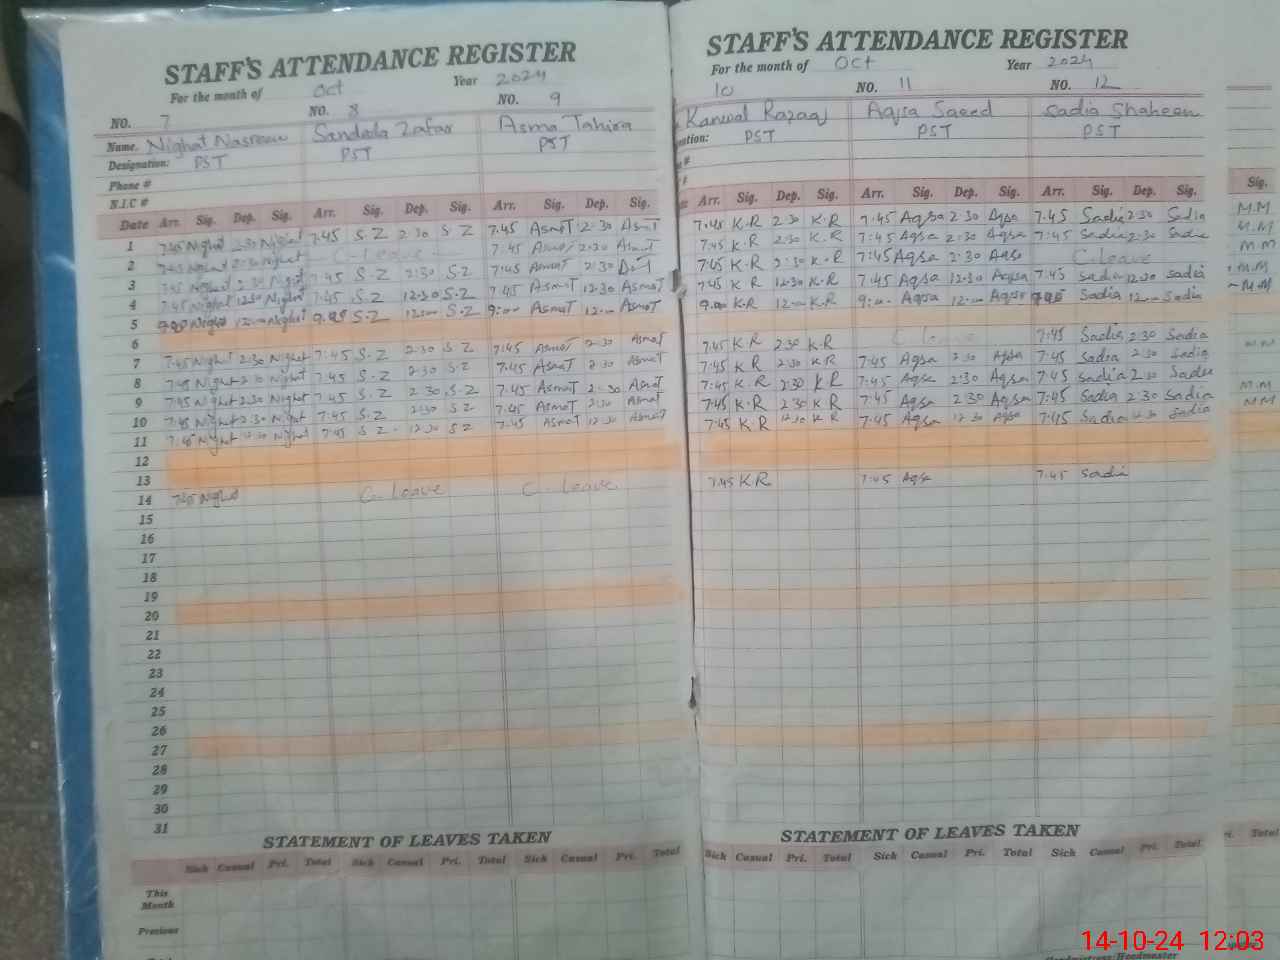 STAFF'S ATTENDANCE REGISTER
For the month of Oct Year 2024
NO. 7 NO. 8 NO. 9
Name. Nighat Nasreen Sandada Zafar Asma Tahira
Designation: PST PST PST
Phone #
N.I.C #
Date Arr. Sig. Dep. Sig. Arr. Sig. Dep. Sig. Arr. Sig. Dep. Sig.
1 7:45 Nighat 2:30 Nighat 7:45 S.Z 2:30 S Z 7:45 AsmaT 2:30 AsmaT
2 7:45 Nighat 2:30 Nighat C-leave 7:45 AsmaT 2:30 AsmaT
3 7:45 Nighat 2:30 Nighat 7:45 S.Z 2:30 S.Z 7:45 AsmaT 2:30
4 7:45 Nighat 12:30 Nighat 7:45 S.Z 12:30 S.Z 7:45 AsmaT 12:30 AsmaT
5 Nighat 12:00 Nighat S.Z 12:00 S.Z 9:00 AsmaT 12:00 AsmaT
6
7 7:45 Nighat 2:30 Nighat 7:45 S.Z 2:30 S Z 7:45 AsmaT 2:30 AsmaT
8 7:45 Nighat 2:30 Nighat 7:45 S.Z 2:30 S Z 7:45 AsmaT 2:30 AsmaT
9 7:45 Nighat 2:30 Nighat 7:45 S.Z 2:30 S.Z 7:45 AsmaT 2:30 AsmaT
10 7:45 Nighat 2:30 Nighat 7:45 S.Z 2:30 S Z 7:45 AsmaT 2:30 AsmaT
11 7:45 Nighat 12:30 Nighat 7:45 S Z 12:30 S Z 7:45 AsmaT 12:30 AsmaT
12
13
14 7:45 Nighat C-leave C-leave
15
16
17
18
19
20
21
22
23
24
25
26
27
28
29
30
31
STATEMENT OF LEAVES TAKEN
Sick Casual Pri. Total Sick Casual Pri. Total Sick Casual Pri. Total
This Month
Previous
STAFF'S ATTENDANCE REGISTER
For the month of Oct Year 2024
10 NO. 11 NO. 12
Kanwal Razaaq Aqsa Saeed Sadia Shaheen
PST PST PST
Arr. Sig. Dep. Sig. Arr. Sig. Dep. Sig. Arr. Sig. Dep. Sig.
7:45 K.R 2:30 K.R 7:45 Aqsa 2:30 Aqsa 7:45 Sadia 2:30 Sadia
7:45 K.R 2:30 K.R 7:45 Aqsa 2:30 Aqsa 7:45 Sadia 2:30 Sadia
7:45 K.R 2:30 K.R 7:45 Aqsa 2:30 Aqsa C-leave
7:45 K.R 12:30 K.R 7:45 Aqsa 12:30 Aqsa 7:45 Sadia 12:30 Sadia
9:00 K.R 12:00 K.R 9:00 Aqsa 12:00 Aqsa Sadia 12:00 Sadia
7:45 K.R 2:30 K.R C leave 7:45 Sadia 2:30 Sadia
7:45 K R 2:30 K R 7:45 Aqsa 2:30 Aqsa 7:45 Sadia 2:30 Sadia
7:45 K.R 2:30 K.R 7:45 Aqsa 2:30 Aqsa 7:45 Sadia 2:30 Sadia
7:45 K.R 2:30 K R 7:45 Aqsa 2:30 Aqsa 7:45 Sadia 2:30 Sadia
7:45 K.R 12:30 K R 7:45 Aqsa 12:30 Aqsa 7:45 Sadia 12:30 Sadia
7:45 K.R 7:45 Aqsa 7:45 Sadia
STATEMENT OF LEAVES TAKEN
Sick Casual Pri. Total Sick Casual Pri. Total Sick Casual Pri. Total
Sig.
M.M
M.M
M.M
M.M
M.M
M.M
M.M
M.M
Total
14-10-24 12:03